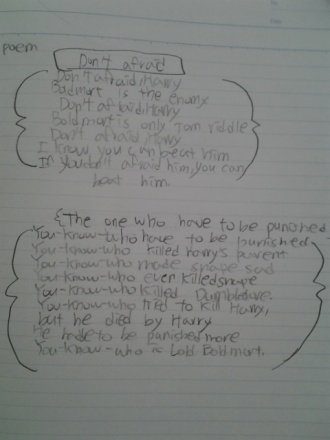 poem
Don't afraid
Don't afraid, Harry
Boldmort is the enemy
Don't afraid, Harry
Boldmort is only Tom riddle
Don't afraid, Harry
I know, you can beat him
If you don't afraid him, you can
beat him.
{The one who have to be punished
You-know-who have to be punished
You-know-who killed harry's parent
You-know-who made snape sad
You-know-who even killed snape
You-know-who killed Dumbledore.
You-know-who tried to kill Harry,
but he died by Harry
He have to be punished more
You-know-who is Lold Boldmort.